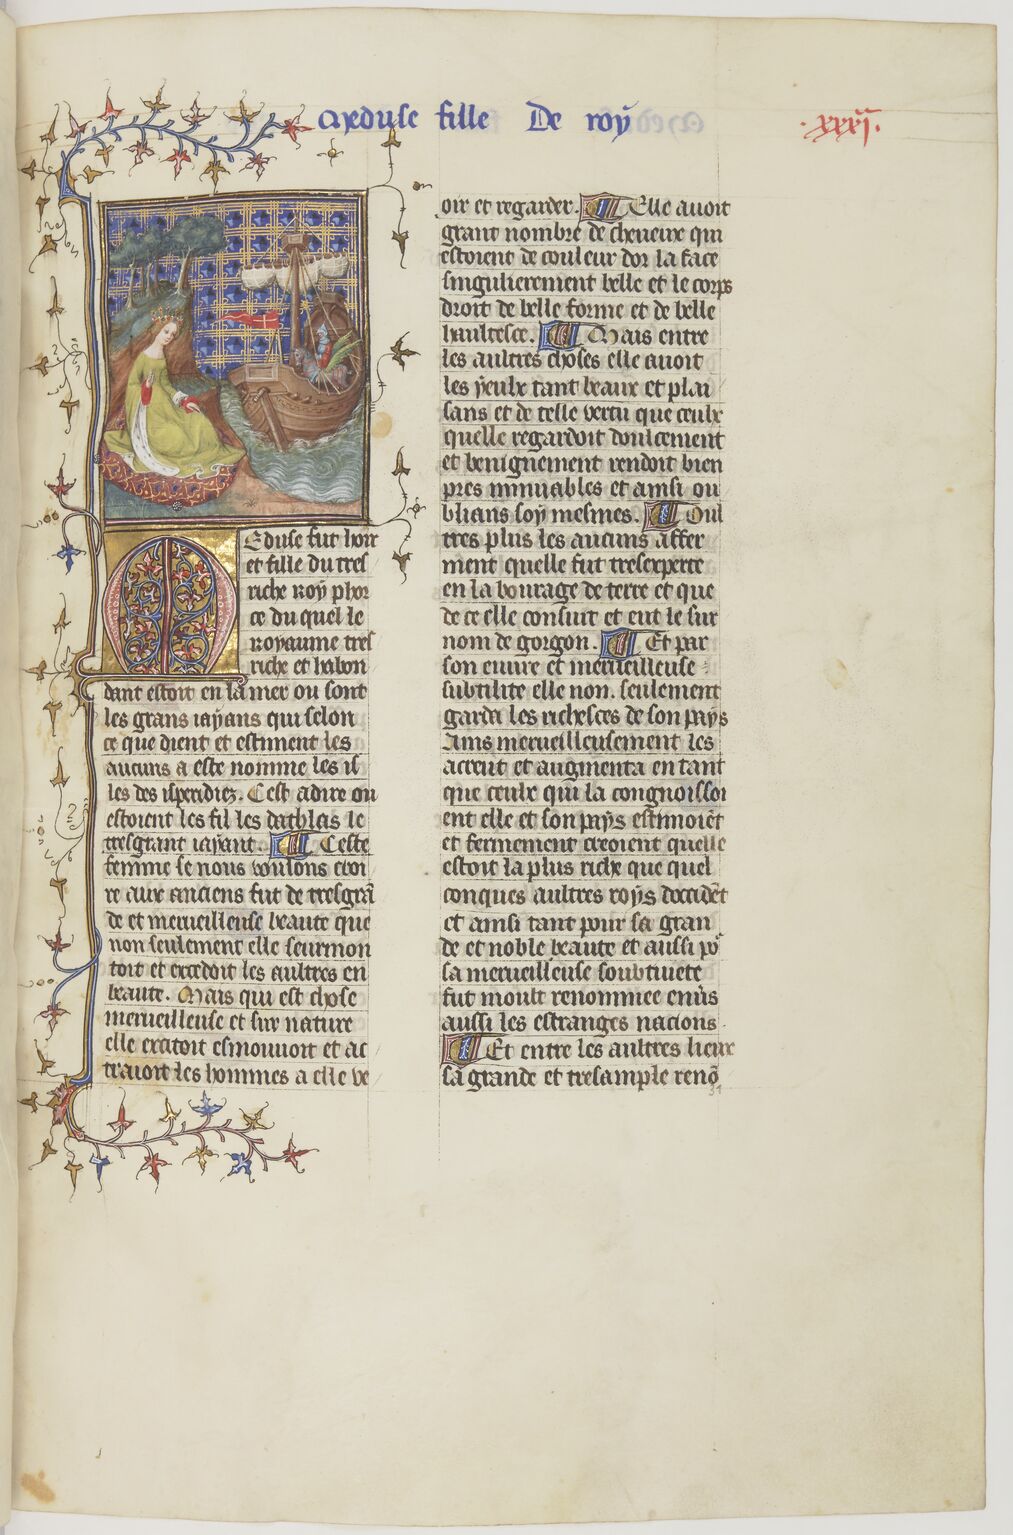 Meduse fille De roy
.xxxi.
Meduse fut hoir
et fille du tres
riche roy phor
ce du quel le
royaume tres
riche et habon
dant estoit en la mer ou sont
les grans iayans qui selon
ce que dient et estiment les
aucuns a este nomme les is
les des isperidiez. Cest adire ou
estoient les fil les dathlas le
tresgrant iayant. Ceste
femme se nous voulons croi
re aux anciens fut de tresgrā
de et merueilleuse beaute que
non seulement elle seurmon
toit et excedoit les aultres en
beaute. Mais qui est chose
merueilleuse et sur nature
elle excitoit esmouuoit et at
traioit les hommes a elle ve
oir et regarder. Elle auoit
grant nombre de cheueux qui
estoient de couleur dor la face
singulierement belle et le corps
droit de belle forme et de belle
haultesce. Mais entre
les aultres choses elle auoit
les yeulx tant beaux et plai
sans et de telle vertu que ceulx
quelle regardoit doulcement
et benignement rendoit bien
pres immuables et ainsi ou
blians soy mesmes. Oul
tres plus les aucuns affer
ment quelle fut tresexperte
en la bourage de terre et que
de ce elle consuit et eut le sur
nom de gorgon. Et par
son euure et merueilleuse
subtilite elle non. seulement
garda les richesces de son pays
Ains merueilleusement les
acreut et augmenta en tant
que ceulx qui la congnoissoi
ent elle et son pays estimoiēt
et fermement creoient quelle
estoit la plus riche que quel
conques aultres roys doccidēt
et ainsi tant pour sa gran
de et noble beaute et aussi po᷑
sa merueilleuse soubtiuete
fut moult renommee enūs
aussi les estranges nacions.
Et entre les aultres lieux
sa grande et tresample renō
31